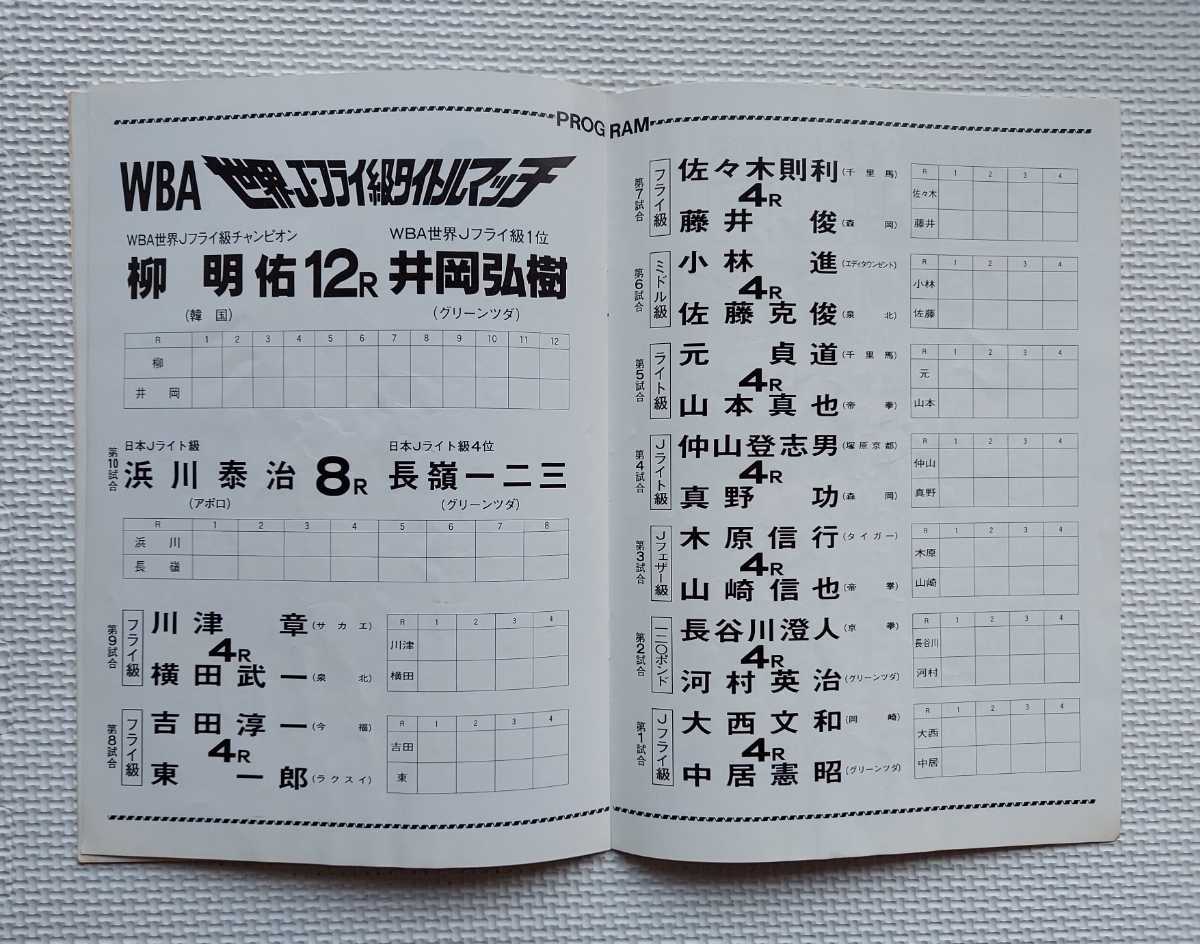 PROGRAM
WBA 世界J・フライ級タイトルマッチ
WBA世界Jフライ級チャンピオン
WBA世界Jフライ級1位
柳明佑 12R 井岡弘樹
(韓国)
(グリーンツダ)
R 1 2 3 4 5 6 7 8 9 10 11 12
柳
井岡
第10試合
日本Jライト級
日本Jライト級4位
浜川泰治 8R 長嶺一二三
(アポロ)
(グリーンツダ)
R 1 2 3 4 5 6 7 8
浜川
長嶺
第9試合
フライ級
川津章(サカエ)
4R
横田武一(泉北)
R 1 2 3 4
川津
横田
第8試合
フライ級
吉田淳一(今福)
4R
東一郎(ラクスイ)
R 1 2 3 4
吉田
東
第7試合
フライ級
佐々木則利(千里馬)
4R
藤井俊(森岡)
R 1 2 3 4
佐々木
藤井
第6試合
ミドル級
小林進(エディタウンゼント)
4R
佐藤克俊(泉北)
R 1 2 3 4
小林
佐藤
第5試合
ライト級
元貞道(千里馬)
4R
山本真也(帝拳)
R 1 2 3 4
元
山本
第4試合
Jライト級
仲山登志男(塚原京都)
4R
真野功(森岡)
R 1 2 3 4
仲山
真野
第3試合
Jフェザー級
木原信行(タイガー)
4R
山崎信也(帝拳)
R 1 2 3 4
木原
山崎
第2試合
一二〇ポンド
長谷川澄人(京拳)
4R
河村英治(グリーンツダ)
R 1 2 3 4
長谷川
河村
第1試合
Jフライ級
大西文和(岡崎)
4R
中居憲昭(グリーンツダ)
R 1 2 3 4
大西
中居